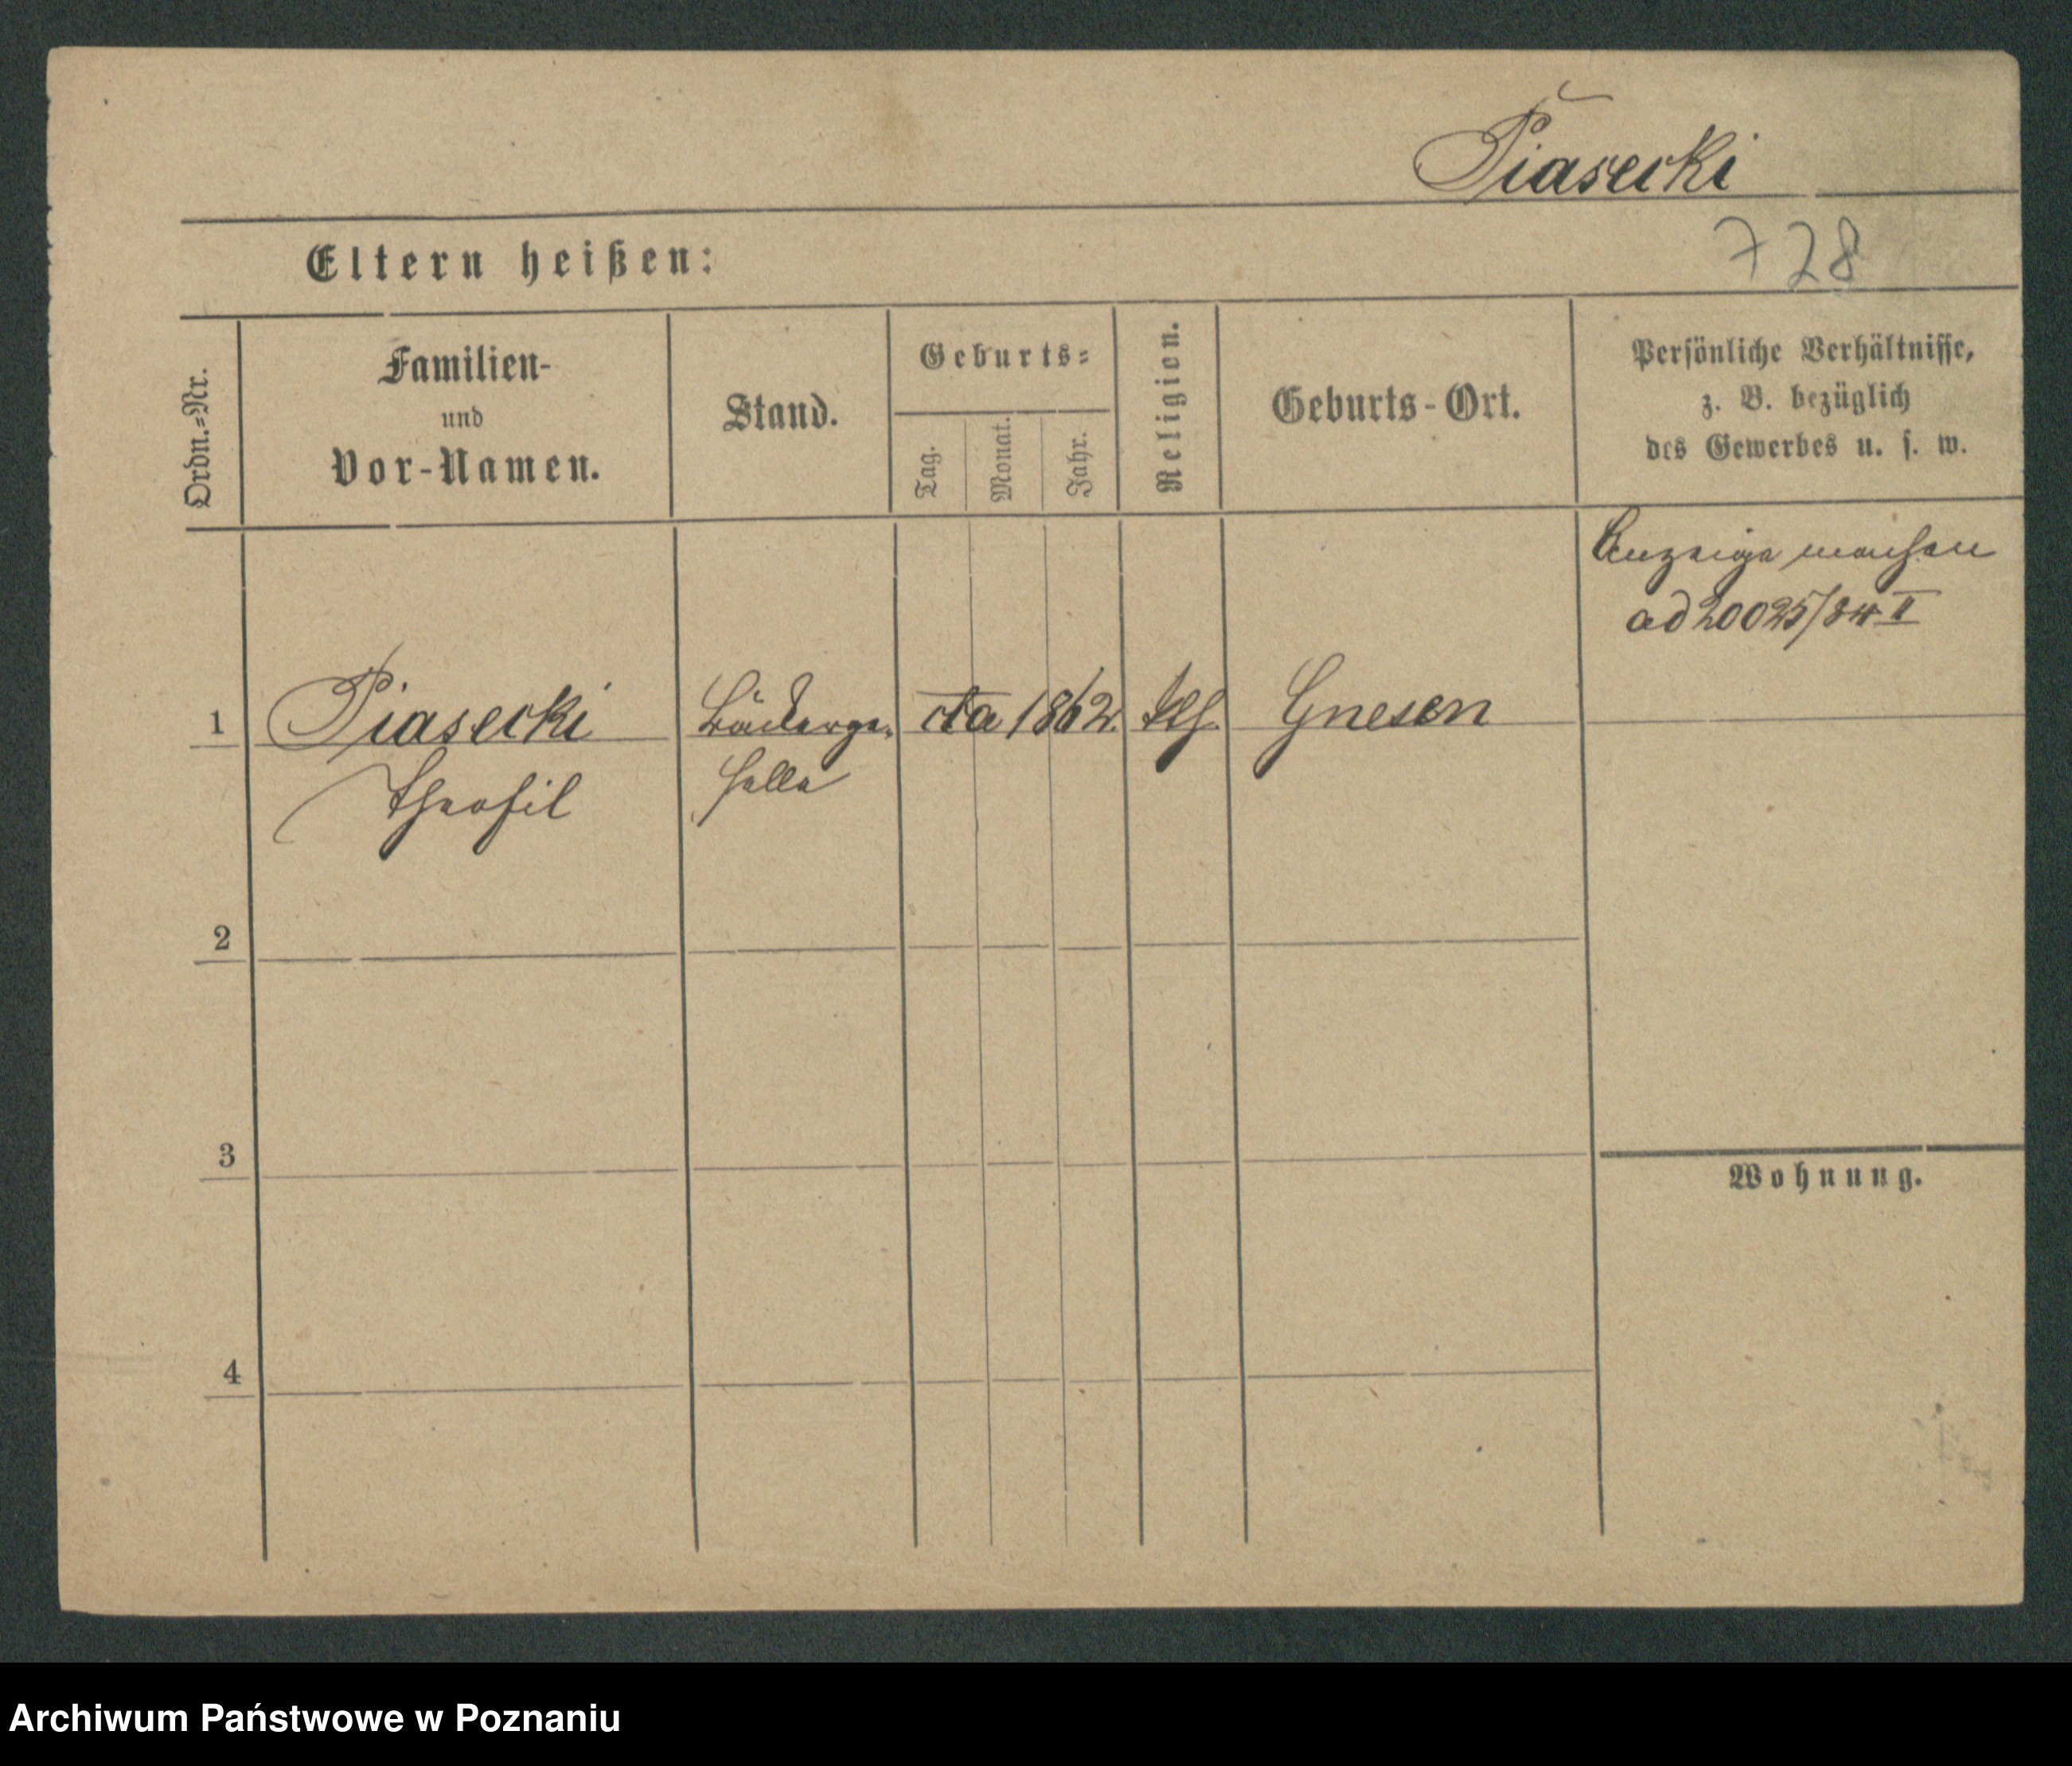 Piasecki
728
Eltern heißen:
Ordn.=Nr.
Familien-
und
Vor-Namen.
Stand.
Geburts=
Tag.
Monat.
Jahr.
Religion.
Geburts-Ort.
Persönliche Verhältnisse,
z. B. bezüglich
des Gewerbes u. s. w.
Anzeige machen
ad 20025/84 II
1
Piasecki
Theofil
Bäckerge-
selle
cta 1862.
kth.
Gnesen
2
3
4
Wohnung.
Archiwum Państwowe w Poznaniu